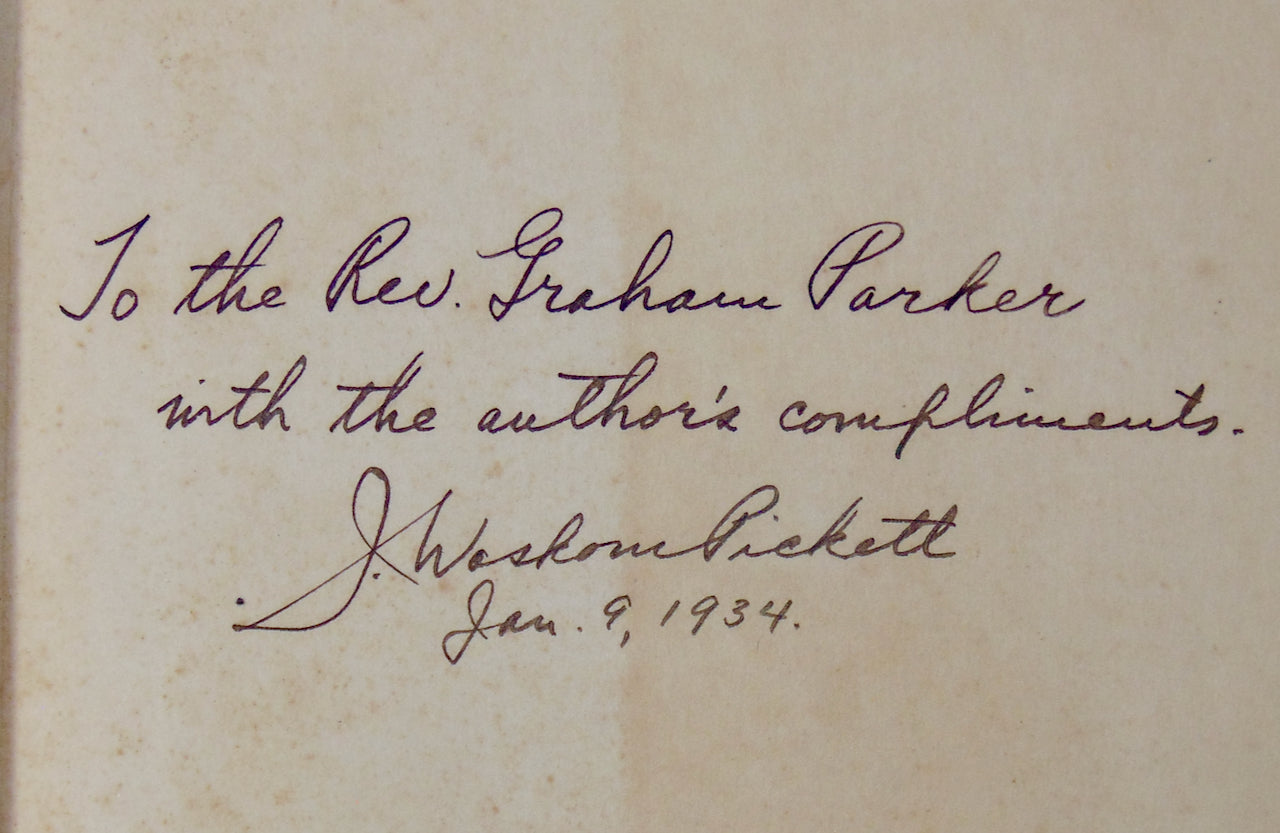 To the Rev. Graham Parker
with the author's compliments.
J. Waskom Pickett
Jan. 9, 1934.